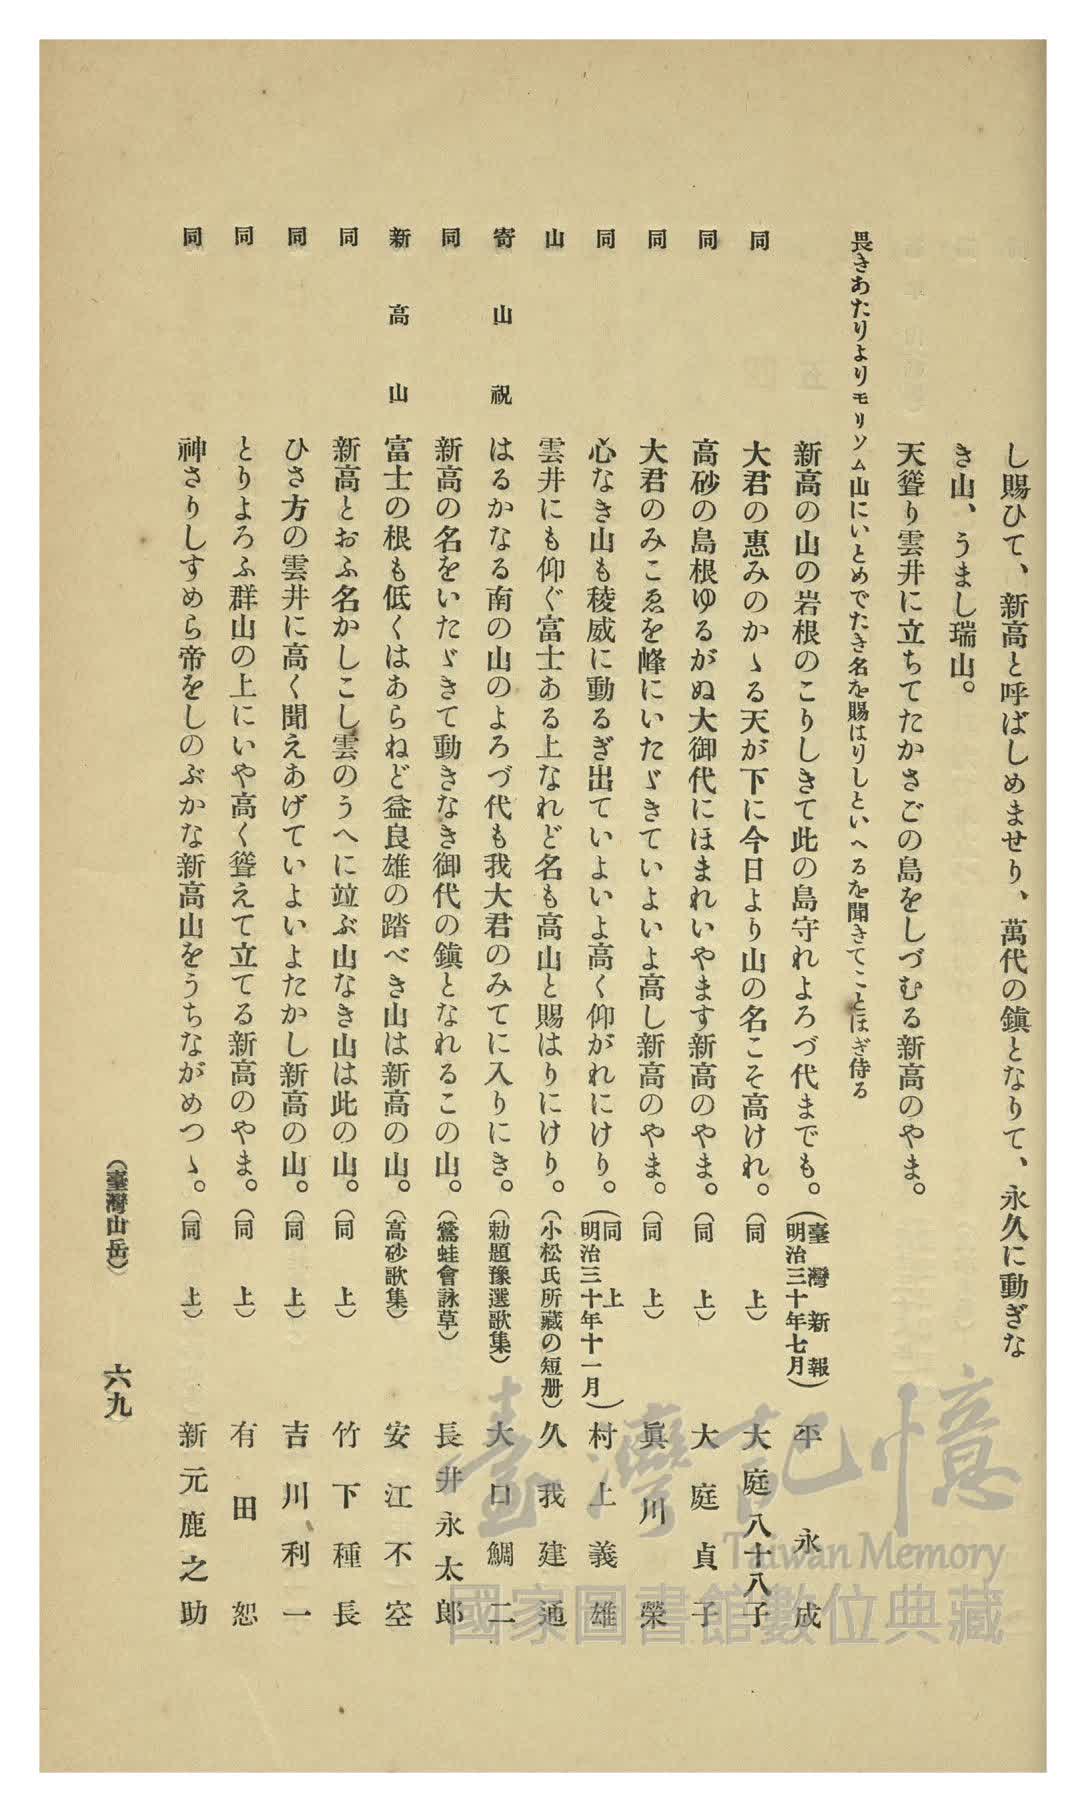 し賜ひて、新高と呼ばしめませり、萬代の鎭となりて、永久に動ぎな
き山、うまし瑞山。
天聳り雲井に立ちてたかさごの島をしづむる新高のやま。
畏きあたりよりモリソム山にいとめでたき名を賜はりしといへるを聞きてことほぎ侍る
新高の山の岩根のこりしきて此の島守れよろづ代までも。(臺灣新報明治三十年七月) 平永成
同 大君の惠みのかゝる天が下に今日より山の名こそ高けれ。(同上) 大庭八十八子
同 高砂の島根ゆるがぬ大御代にほまれいやます新高のやま。(同上) 大庭貞子
同 大君のみこゑを峰にいたゞきていよいよ高し新高のやま。(同上) 眞川榮
同 心なき山も稜威に動るぎ出ていよいよ高く仰がれにけり。(同上明治三十年十一月) 村上義雄
山 雲井にも仰ぐ富士ある上なれど名も高山と賜はりにけり。(小松氏所藏の短册) 久我建通
寄山祝 はるかなる南の山のよろづ代も我大君のみてに入りにき。(勅題豫選歌集) 大口鯛二
同 新高の名をいたゞきて動きなき御代の鎭となれるこの山。(鶯蛙會詠草) 長井永太郎
新高山 富士の根も低くはあらねど益良雄の踏べき山は新高の山。(高砂歌集) 安江不空
同 新高とおふ名かしこし雲のうへに竝ぶ山なき山は此の山。(同上) 竹下種長
同 ひさ方の雲井に高く聞えあげていよいよたかし新高の山。(同上) 吉川利一
同 とりよろふ群山の上にいや高く聳えて立てる新高のやま。(同上) 有田恕
同 神さりしすめら帝をしのぶかな新高山をうちながめつゝ。(同上) 新元鹿之助
(臺灣山岳) 六九
臺灣記憶
Taiwan Memory
國家圖書館數位典藏